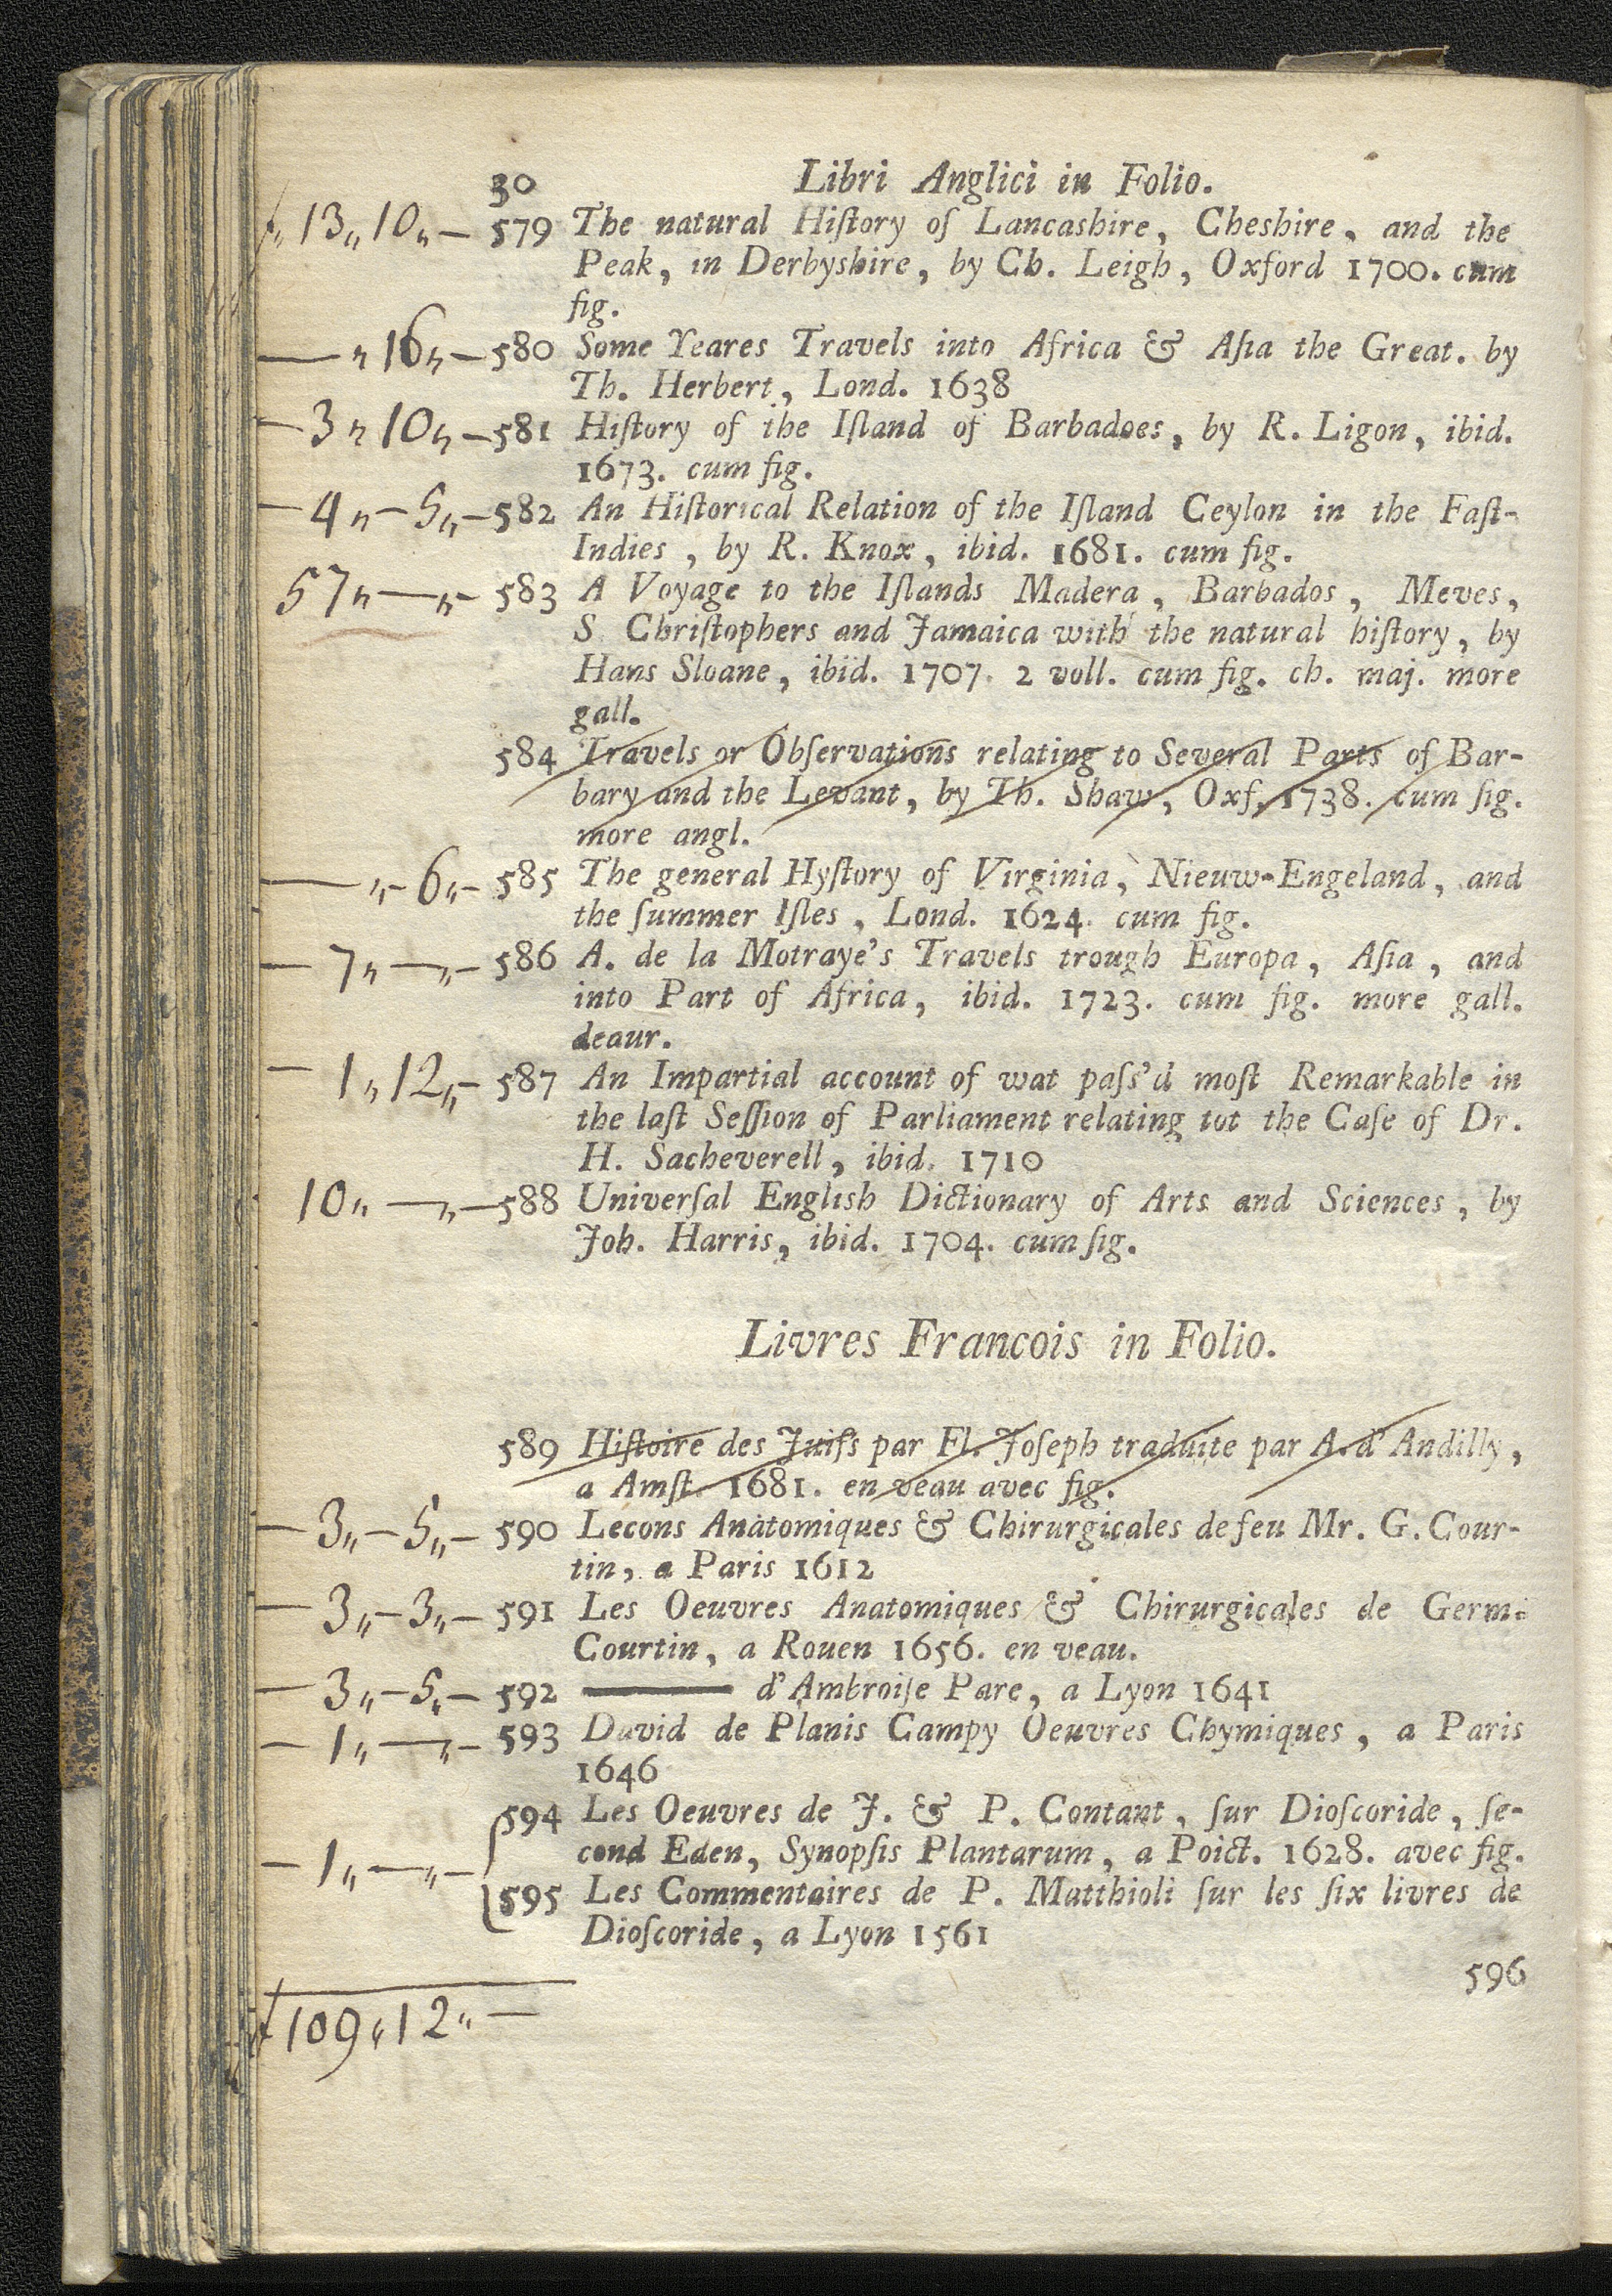 30 Libri Anglici in Folio.
ƒ„ 13„ 10„ — 579 The natural Hiſtory of Lancashire, Cheshire, and the
Peak, in Derbyshire, by Ch. Leigh, Oxford 1700. cum
fig.
— „ 16„ — 580 Some Yeares Travels into Africa & Aſia the Great. by
Th. Herbert, Lond. 1638
— 3 „ 10„ — 581 Hiſtory of the Iſland of Barbadoes, by R. Ligon, ibid.
1673. cum fig.
— 4„ — 5„ — 582 An Hiſtorical Relation of the Iſland Ceylon in the Faſt-
Indies, by R. Knox, ibid. 1681. cum fig.
57„ — „ — 583 A Voyage to the Iſlands Madera, Barbados, Meves,
S Chriſtophers and Jamaica with the natural hiſtory, by
Hans Sloane, ibid. 1707. 2 voll. cum fig. ch. maj. more
gall.
584 Travels or Obſervations relating to Several Parts of Bar-
bary and the Levant, by Th. Shaw, Oxf. 1738. cum fig.
more angl.
— „ — 6„ — 585 The general Hyſtory of Virginia, Nieuw-Engeland, and
the ſummer Iſles, Lond. 1624. cum fig.
— 7„ — „ — 586 A. de la Motraye's Travels trough Europa, Aſia, and
into Part of Africa, ibid. 1723. cum fig. more gall.
deaur.
— 1„ 12„ — 587 An Impartial account of wat paſs'd moſt Remarkable in
the laſt Seſſion of Parliament relating tot the Caſe of Dr.
H. Sacheverell, ibid. 1710
10„ — „ — 588 Univerſal English Dictionary of Arts and Sciences, by
Joh. Harris, ibid. 1704. cum fig.
Livres Francois in Folio.
589 Hiſtoire des Juifs par Fl. Joſeph traduite par A. d'Andilly,
a Amſt. 1681. en veau avec fig.
— 3„ — 5„ — 590 Lecons Anatomiques & Chirurgicales de feu Mr. G. Cour-
tin, a Paris 1612
— 3„ — 3„ — 591 Les Oeuvres Anatomiques & Chirurgicales de Germ.
Courtin, a Rouen 1656. en veau.
— 3„ — 5„ — 592 ——— d'Ambroiſe Pare, a Lyon 1641
— 1„ — „ — 593 David de Planis Campy Oeuvres Chymiques, a Paris
1646
594 Les Oeuvres de J. & P. Contant, ſur Dioſcoride, ſe-
cond Eden, Synopſis Plantarum, a Poict. 1628. avec fig.
— 1„ — „ —
595 Les Commentaires de P. Matthioli ſur les ſix livres de
Dioſcoride, a Lyon 1561
596
ƒ 109„ 12„ —